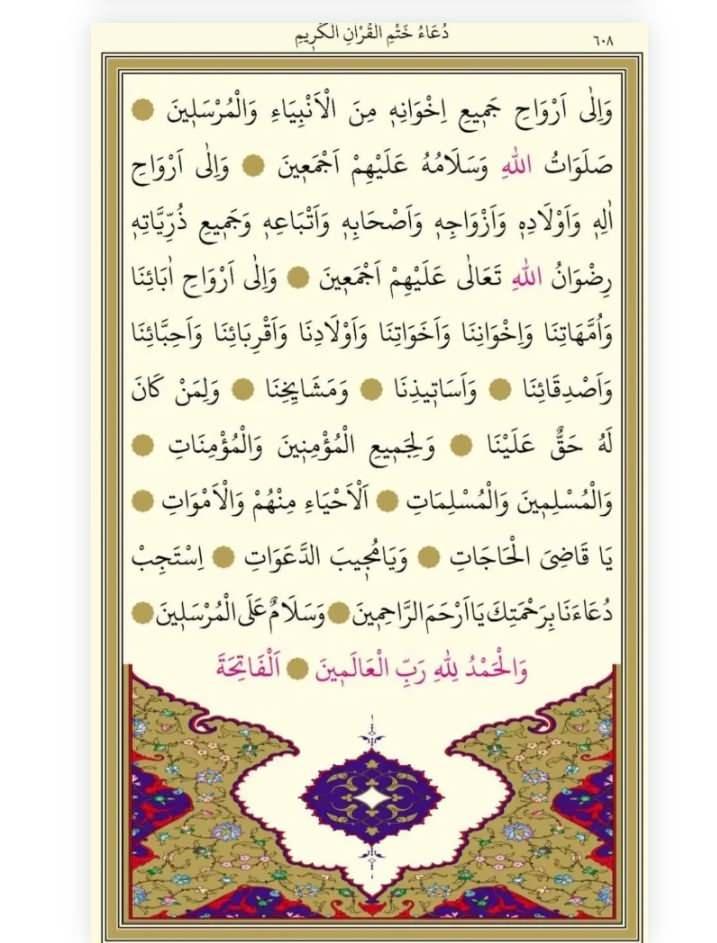 ٦٠٨ دُعَاءُ خَتْمِ الْقُرْاٰنِ الْكَرٖيمِ
وَاِلٰى اَرْوَاحِ جَمٖيعِ اِخْوَانِهٖ مِنَ الْاَنْبِيَاءِ وَالْمُرْسَلٖينَ
صَلَوَاتُ اللّٰهِ وَسَلَامُهُ عَلَيْهِمْ اَجْمَعٖينَ وَاِلٰى اَرْوَاحِ
اٰلِهٖ وَاَوْلَادِهٖ وَاَزْوَاجِهٖ وَاَصْحَابِهٖ وَاَتْبَاعِهٖ وَجَمٖيعِ ذُرِّيَّاتِهٖ
رِضْوَانُ اللّٰهِ تَعَالٰى عَلَيْهِمْ اَجْمَعٖينَ وَاِلٰى اَرْوَاحِ اٰبَائِنَا
وَاُمَّهَاتِنَا وَاِخْوَانِنَا وَاَخَوَاتِنَا وَاَوْلَادِنَا وَاَقْرِبَائِنَا وَاَحِبَّائِنَا
وَاَصْدِقَائِنَا وَاَسَاتٖيذِنَا وَمَشَايِخِنَا وَلِمَنْ كَانَ
لَهُ حَقٌّ عَلَيْنَا وَلِجَمٖيعِ الْمُؤْمِنٖينَ وَالْمُؤْمِنَاتِ
وَالْمُسْلِمٖينَ وَالْمُسْلِمَاتِ اَلْاَحْيَاءِ مِنْهُمْ وَالْاَمْوَاتِ
يَا قَاضِىَ الْحَاجَاتِ وَيَا مُجٖيبَ الدَّعَوَاتِ اِسْتَجِبْ
دُعَاءَنَا بِرَحْمَتِكَ يَا اَرْحَمَ الرَّاحِمٖينَ وَسَلَامٌ عَلَى الْمُرْسَلٖينَ
وَالْحَمْدُ لِلّٰهِ رَبِّ الْعَالَمٖينَ اَلْفَاتِحَةَ